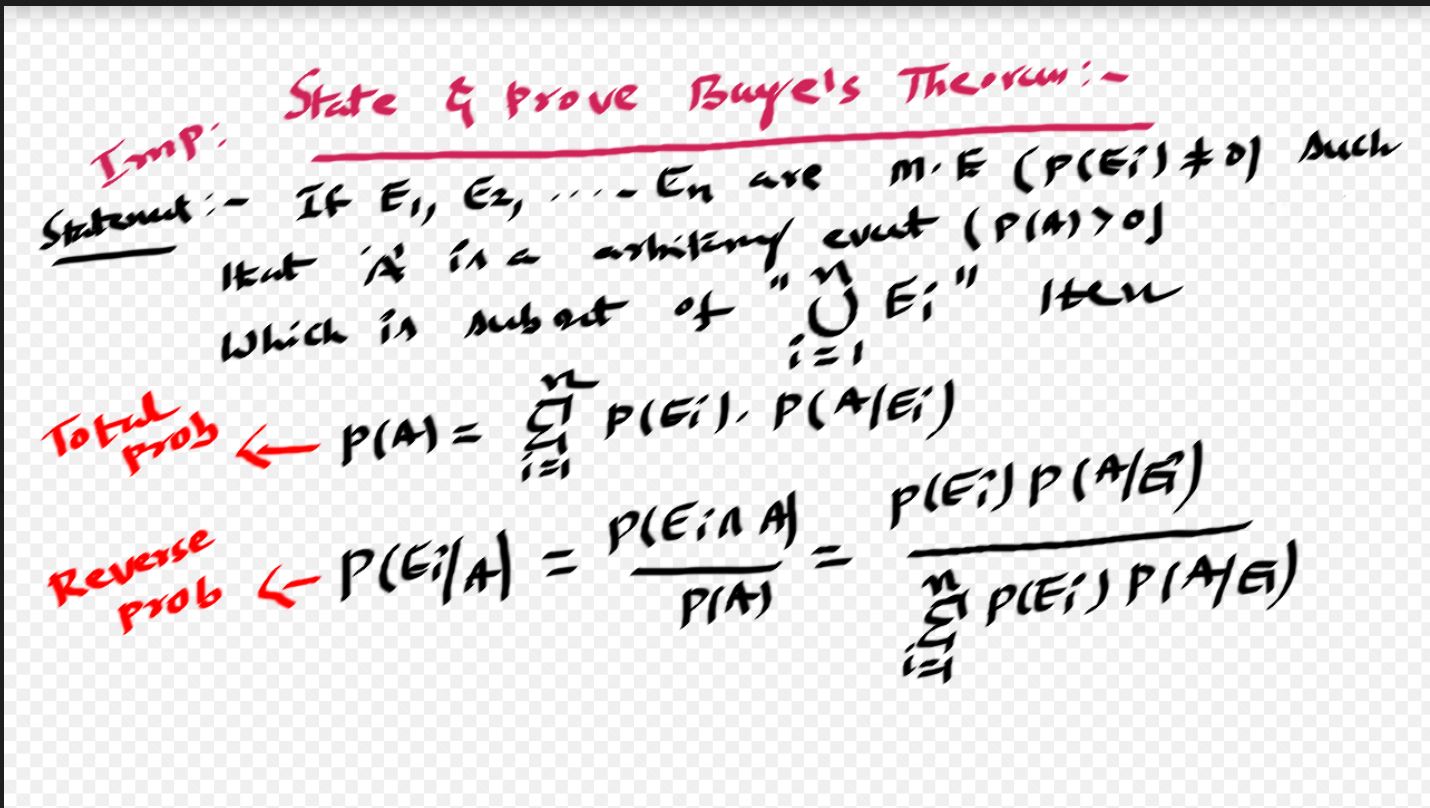 Imp: State & Prove Baye's Theoram:-
Statement:- If E₁, E₂, ..... Eₙ are M.E (P(Eᵢ) ≠ 0) such
that 'A' is a arbitary event (P(A) > 0)
which is subset of "⋃ᵢ₌₁ⁿ Eᵢ" then
Total prob ← P(A) = Σᵢ₌₁ⁿ P(Eᵢ). P(A/Eᵢ)
Reverse prob ← P(Eᵢ/A) = P(Eᵢ∩A) / P(A) = P(Eᵢ) P(A/Eᵢ) / Σᵢ₌₁ⁿ P(Eᵢ) P(A/Eᵢ)